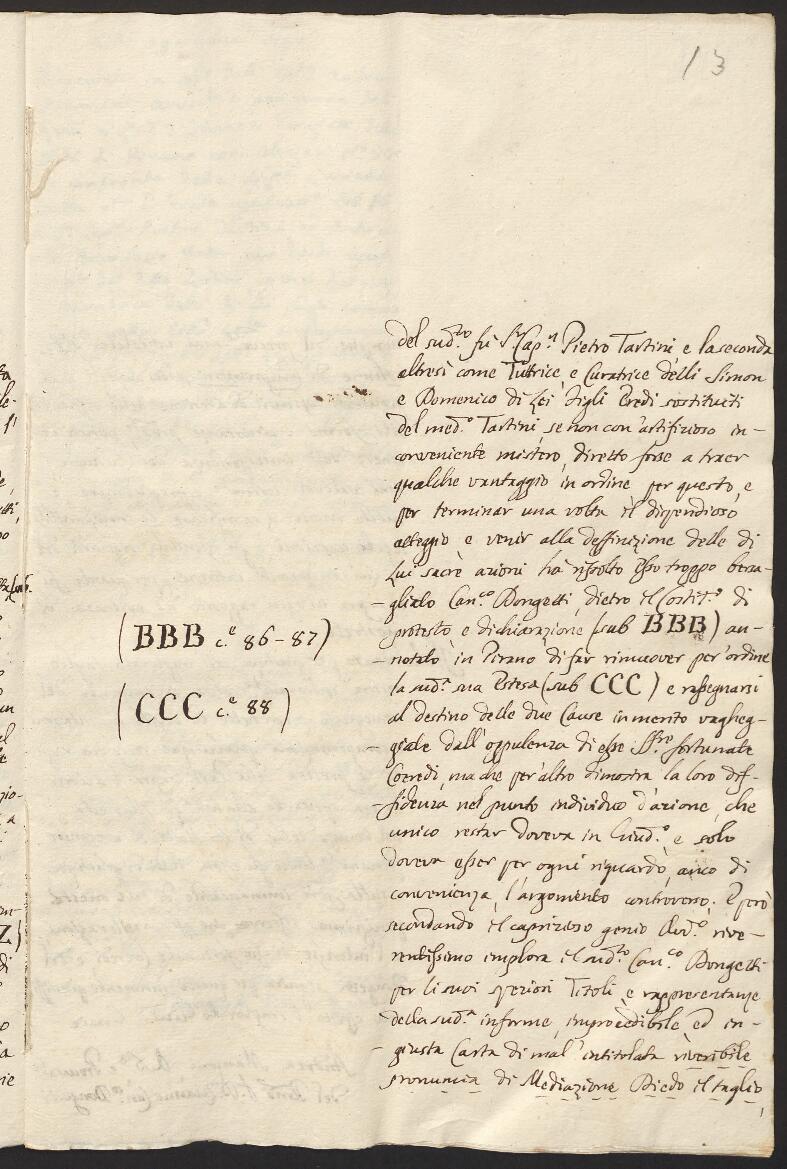 13
del sud.to fù S.r Cap.n Pietro Tartini, e la seconda
altresì come Tuttrice, e Curatrice delli Simon
e Domenico di Lei Figli Eredi sostituiti
del med.o Tartini, se non con artifizioso in-
conveniente mistero, diretto forse a traer
qualche vantaggio in ordine per questo, e
per terminar una volta il dispendioso
alteggio e venir alla deffinizione delle di
Lui sacre azioni hà rissolto Esso troppo bersa-
-gliato Can.co Dongetti, dietro il Costit.o di
protesto, e dichiarazione (sub BBB) an-
-notato in Pirano di far rimuover per ordine
la sud.a sua Estesa (sub CCC) e rassegnarsi
al destino delle due Cause in merito vagheg-
-giate dall'oppulenza di esse fortunate
Coeredi, ma che per altro dimostra la loro dif-
-fidenza nel punto individuo d'azione, che
unico restar doveva in Giud.o, e solo
doveva esser per ogni riguardo, anco di
convenienza, l'argomento controverso. E però
secondando il caprizioso genio Avv.o, rive-
rentissimo implora il sud.to Can.co Dongetti
per li suoi speziosi Titoli, e rappresentanze
della sud.a informe, improcedibile, ed in-
-giusta Carta di mal' intitolata riveribile
pronuncia di Mediazione Piedo il taglio,
(BBB c.e 86-87)
(CCC c.e 88)